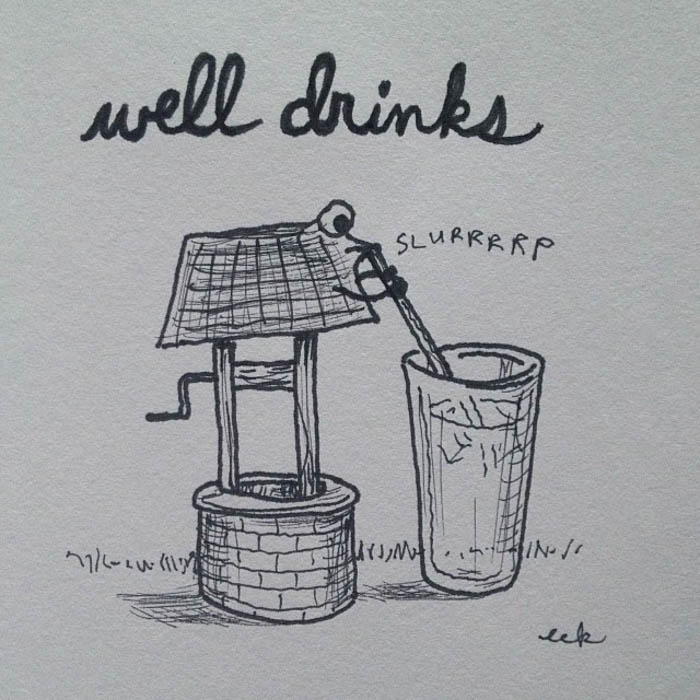 well drinks
SLURRRRP
eek